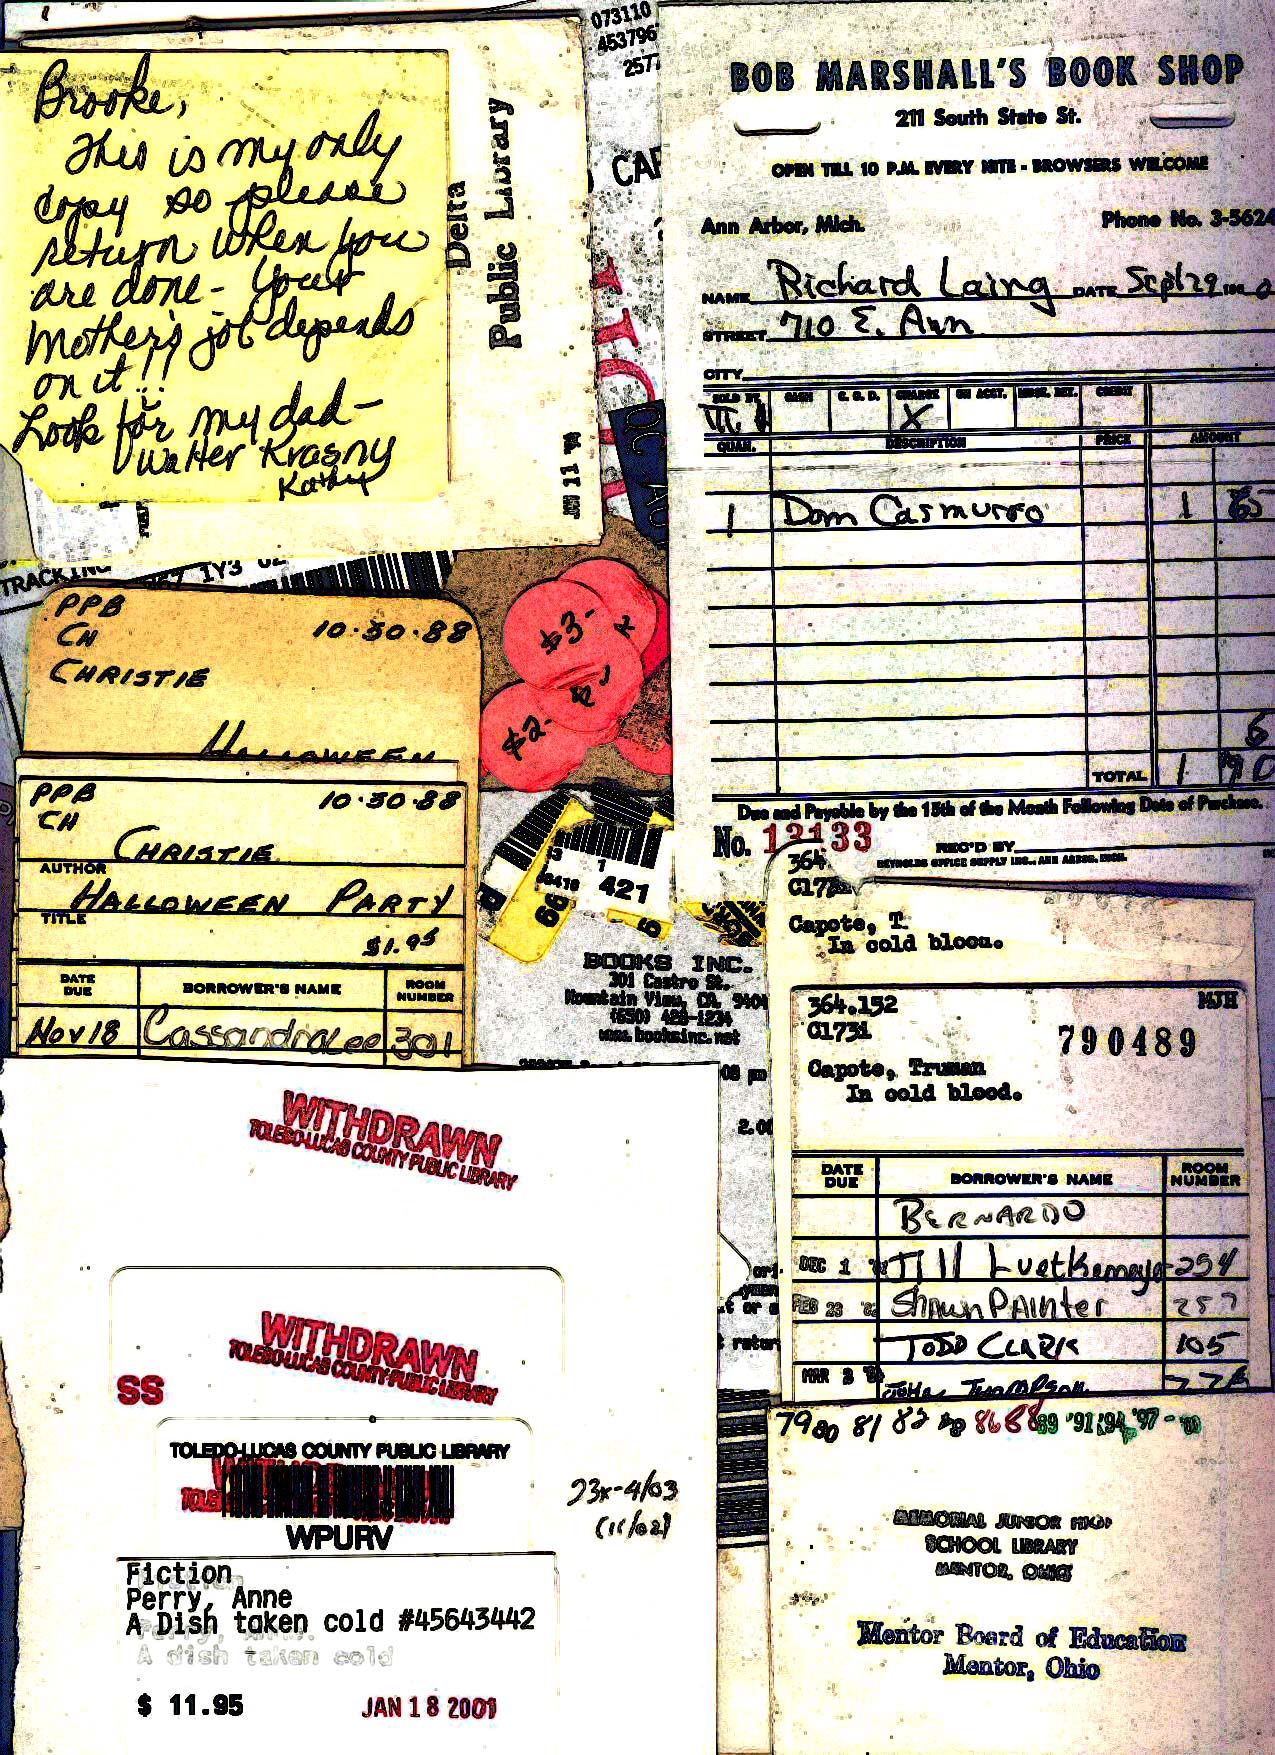 Brooke,
This is my only
copy so please
return when you
are done - Your
Mother's job depends
on it!!
Look for my dad-
Walter Krasny
Kathy
Delta
Public Library
073110
453796
257
BOB MARSHALL'S BOOK SHOP
211 South State St.
OPEN TILL 10 P.M. EVERY NITE - BROWSERS WELCOME
Ann Arbor, Mich.
Phone No. 3-5624
NAME Richard Laing DATE Sept 29
STREET 710 E. Ann
CITY
SOLD BY CASH C. O. D. CHARGE ON ACCT. MDSE. RET. CREDIT
X
QUAN. DESCRIPTION PRICE AMOUNT
1 Dom Casmurro 1 85
5
TOTAL 1 90
Due and Payable by the 15th of the Month Following Date of Purchase.
No. 13133
REC'D BY
REYNOLDS OFFICE SUPPLY INC., ANN ARBOR, MICH.
TRACKING
1Y3
PPB
CH 10·30·88
CHRISTIE
HALLOWEEN
PPB 10·30·88
CH
CHRISTIE
AUTHOR
HALLOWEEN PARTY
TITLE
$1.95
DATE DUE BORROWER'S NAME ROOM NUMBER
Nov 18 Cassandra Lee 301
$3-
$2-
421
66
BOOKS INC.
301 Castro St.
Mountain View, CA, 9404
(650) 428-1234
www.booksinc.net
364.
C173
Capote, T.
In cold blood.
364.152 MJH
C173i
790489
Capote, Truman
In cold blood.
DATE DUE BORROWER'S NAME ROOM NUMBER
BERNARDO
DEC 1 Jill Luetkemeyer 254
FEB 23 Shawn Painter 257
TODD CLARK 105
MAR 2 John Thompson
79 80 81 82 86 88 89 '91 '94 '97
MEMORIAL JUNIOR HIGH
SCHOOL LIBRARY
MENTOR, OHIO
Mentor Board of Education
Mentor, Ohio
WITHDRAWN
TOLEDO-LUCAS COUNTY PUBLIC LIBRARY
WITHDRAWN
TOLEDO-LUCAS COUNTY PUBLIC LIBRARY
SS
TOLEDO-LUCAS COUNTY PUBLIC LIBRARY
WPURV
23x-4/03
(11/02)
Fiction
Perry, Anne
A Dish taken cold #45643442
A dish taken cold
$ 11.95 JAN 18 2001